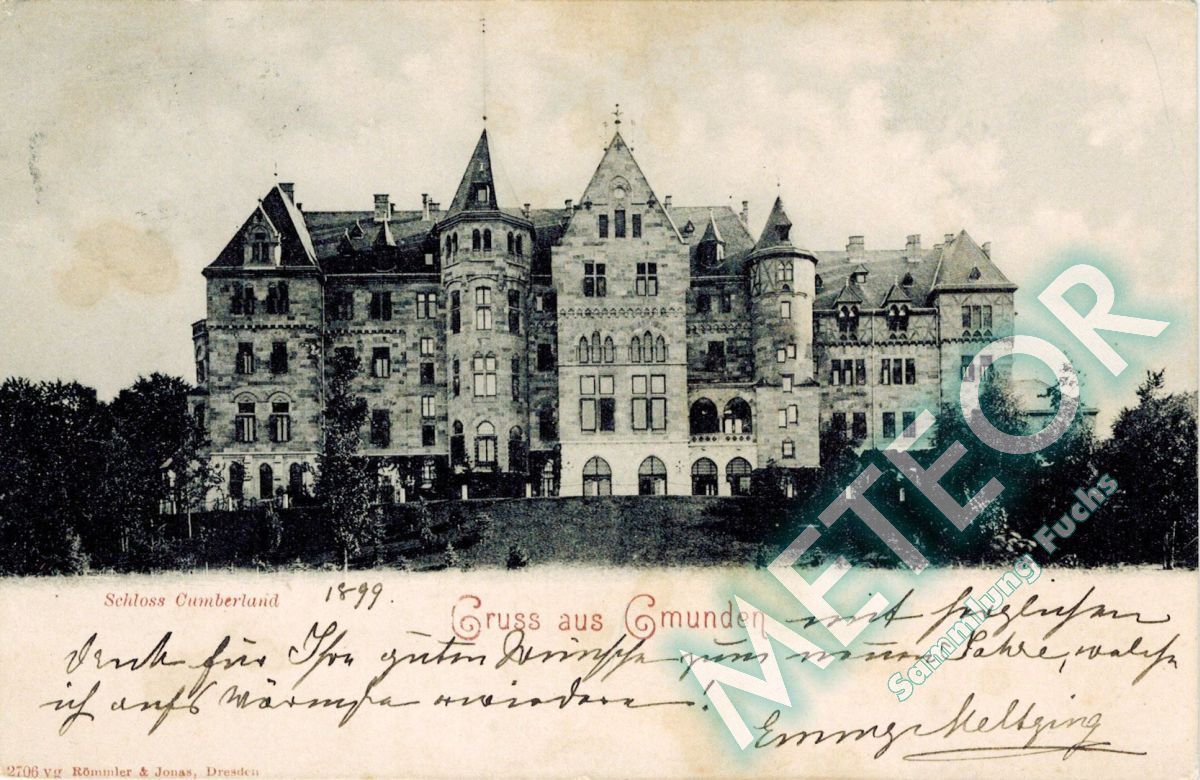 Schloss Cumberland
1899.
Gruss aus Gmunden
mit herzlichem
Dank für Ihre guten Wünsche zum neuen Jahre, welche
ich aufs Wärmste erwiedere!
2706 vg Römmler & Jonas, Dresden
METEOR
Sammlung Fuchs